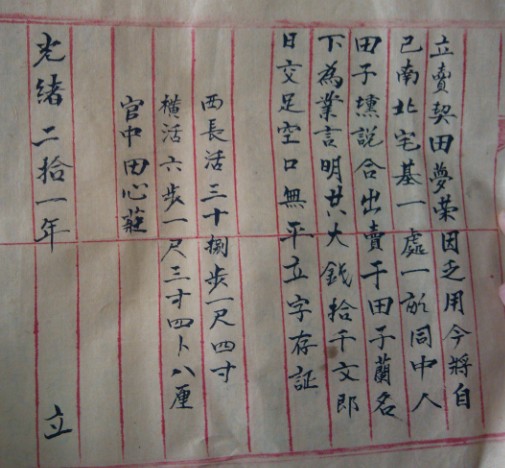 立賣契田夢榮因乏用今將自
已南北宅基一處一所同中人
田子壎説合出賣于田子蘭名
下為業言明廿八大錢拾千文郎
日交足空口無平立字存証
西長活三十捌步一尺四寸
橫活六步一尺三寸四卜八厘
官中田心莊
光緒二拾一年 立